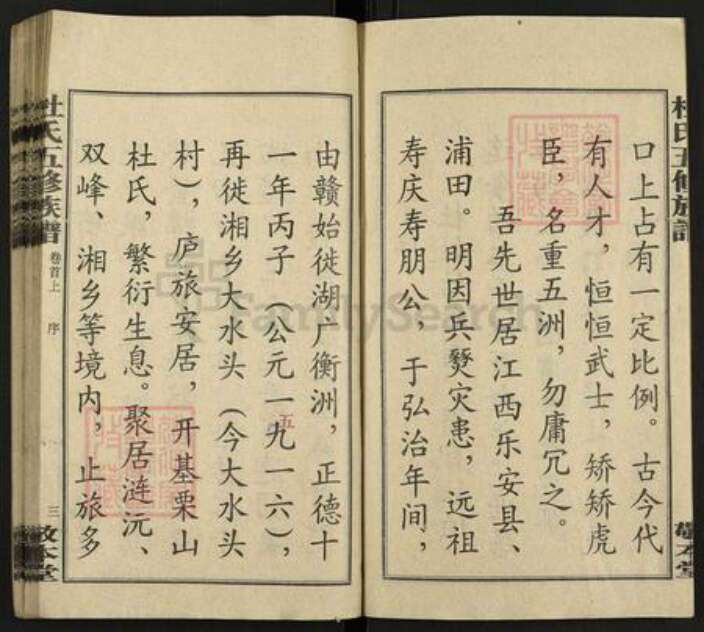 杜氏五修族譜
口上占有一定比例。古今代
有人才，恒恒武士，矫矫虎
臣，名重五洲，勿庸冗之。
吾先世居江西乐安县、
浦田。明因兵燹灾患，远祖
寿庆寿朋公，于弘治年间，
敬本堂
由赣始徙湖广衡洲，正德十
一年丙子（公元一九一六），
五
再徙湘乡大水头（今大水头
村），庐旅安居，开基栗山
杜氏，繁衍生息。聚居涟沅、
双峰、湘乡等境内，止旅多
杜氏五修族譜
卷首上
序
三
敬本堂
FamilySearch